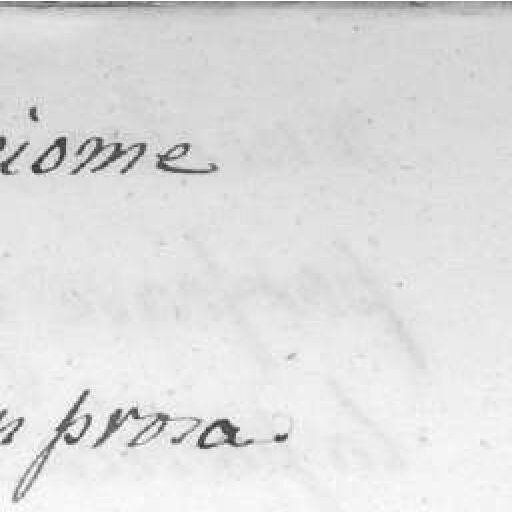 iome
n prosa.